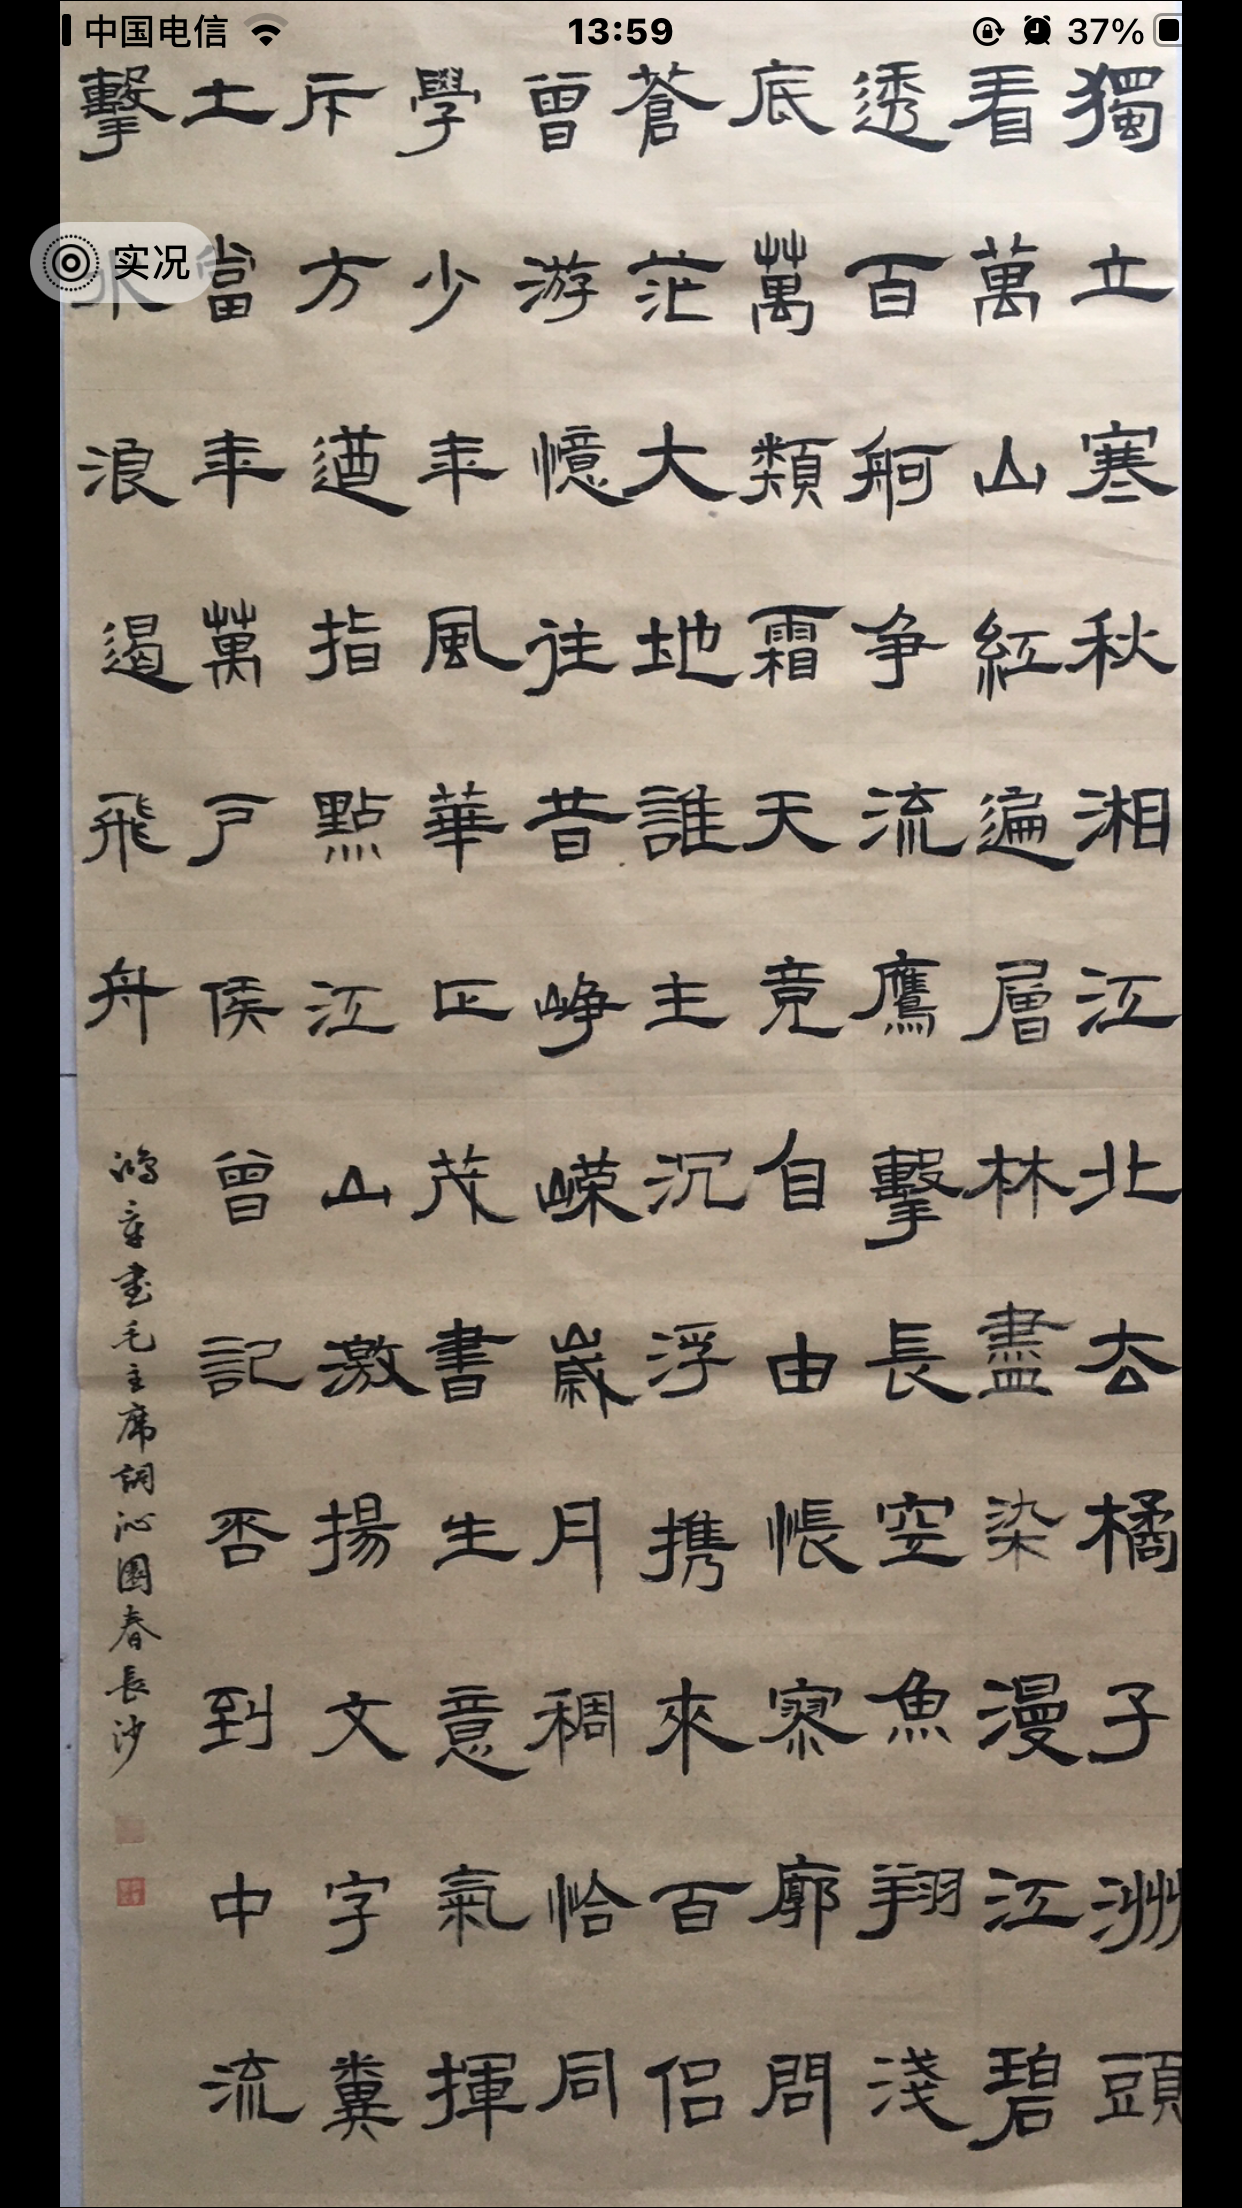 中国电信 13:59 37%
实况
獨立寒秋湘江北去橘子洲頭
看萬山紅遍層林盡染漫江碧
透百舸争流鷹擊長空魚翔淺
底萬類霜天竞自由悵寥廓問
蒼茫大地誰主沉浮携來百侣
曾游憶往昔峥嵘歲月稠恰同
學少年風華正茂書生意氣揮
斥方遒指點江山激揚文字糞
土當年萬户侯曾記否到中流
擊水浪遏飛舟
鴻章书毛主席詞沁園春長沙